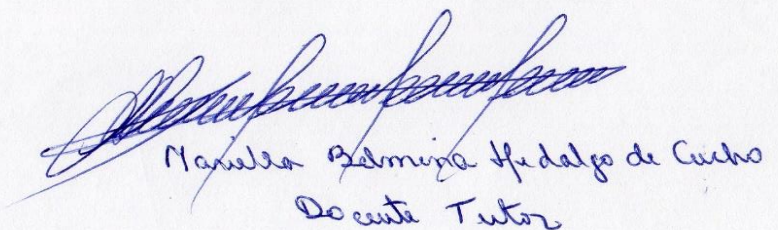 Mariella Belmina Hidalgo de Cucho
Docente Tutor